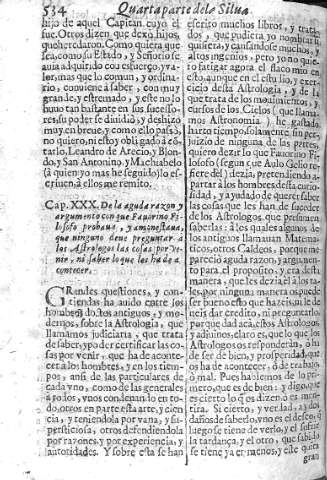 534 Quarta parte dela Silua
hijo de aquel Capitan cuyo el
fue. Otros dizen, que dexò hijos,
que heredaron. Como quiera que
sea, como su Estado, y Señorio se
auia adquirido con esfuerço, y va-
lor, mas que lo comun, y ordina-
rio, conuiene à saber, con muy
grande, y estremado, y este no lo
huuo tan bastante en sus sucesso-
res, su poder se diuidiò, y deshizo
muy en breue, y como ello passò,
no quiero, ni estoy obligado à cõ-
tarlo. Leandro de Arecio, y Blon-
do, y San Antonino, y Machiabelo
(à quien yo mas he seguido) lo es-
criuen, à ellos me remito.
Cap. XXX. De la aguda razon y
argumento con que Fauorino Fi
losofo prohaua, y amonestaua,
que ninguno deue preguntar à
los Astrologos las cosas por ve-
nir, ni saber lo que les ha de a
contecer.
GRandes questiones, y con-
tiendas ha auido entre los
hombres doctos antiguos, y mo-
dernos, sobre la Astrologia, que
llamamos judiciaria, que trata
de saber, y poder certificar las co-
sas por venir, que ha de aconte-
cer à los hombres, y en los tiem-
pos, ansi de las particulares de
cada vno, como de las generales
à todos, vnos condenando en to-
do, otros en parte esta arte, y cien
cia, y teniendola por vana, y su-
persticiosa, otros defendiendola
por razones, y por experiencia, y
autoridades. Y sobre esta se han
escrito muchos libros, y trata-
dos, que pudiera yo nombrar si
quisiera, y cansandose muchos, y
altos ingenios, pero yo no quie-
ro fatigar agora el flaco mio en
esto, aunque en el estudio, y exer-
cicio desta Astrologia, y de la
que trata de los mouimientos, y
cursos de los Cielos (que llama-
mos Astronomia) he gastado
harto tiempo, solamente, sin per-
juizio de ninguna de las partes,
quiero dezir lo que Fauorino Fi-
losofo (segun que Aulo Gelio re-
fiere dèl) dezia, pretendiendo a-
partar à los hombres desta curio-
sidad, y ayudado de querer saber
las cosas que les han de suceder
de los Astrologos, que presumen
saberlas: à los quales algunos de
los antiguos llamauan Matema-
ticos, otros Caldeos, porque me
pareciò aguda razon, y argumen-
to para el proposito, y era desta
manera, que les dezia el à los ta-
les: por ninguna manera os puede
ser bueno esto que hazeis, ni le de
ueis dar credito, ni preguntarlo,
porque dad acà, estos Astrologos,
y adiuinos, claro es, que lo que los
Astrologos os responderàn, ò ha
de ser de bien, y prosperidad, que
os ha de acontecer, ò de trabajo,
ò mal. Pues hablemos de lo pri-
mero, que es de bien, y digo, que
es cierto lo que os dizen, o es men-
tira. Si cierto, y verdad, ay dos
daños de saberlo, vno es el desseo, que
luego se tiene de verlo, y el sofrir
la tardança, y el otro, que sabido
se tiene ya en menos, y este quita
gran